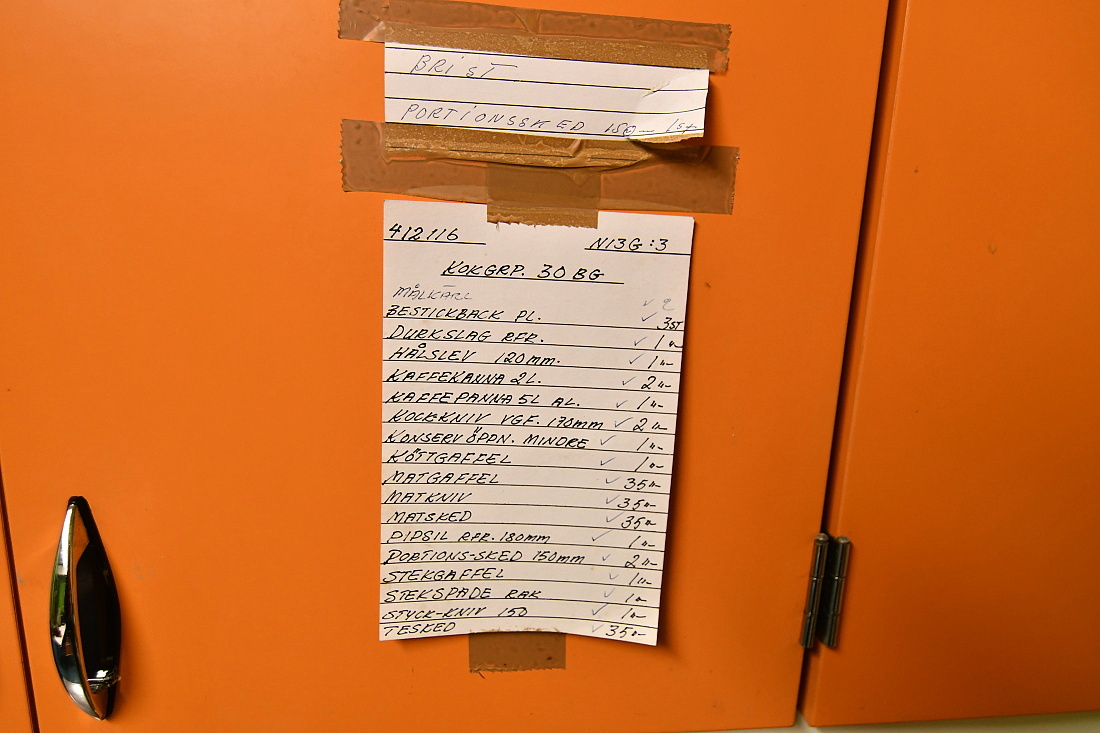 BRiST
PORTiONSSKED 150— 1 st
412116 N13G:3
KOKGRP. 30 BG
MÅLKÄRL ✓ 2
BESTICKBACK PL. ✓ 3ST
DURKSLAG RFR. ✓ 1 "-
HÅLSLEV 120mm. ✓ 1 "-
KAFFEKANNA 2L. ✓ 2 "-
KAFFEPANNA 5L AL. ✓ 1 "-
KOCKKNIV VGF. 170mm ✓ 2 "-
KONSERVÖPPN. MINDRE ✓ 1 "-
KÖTTGAFFEL ✓ 1 "-
MATGAFFEL ✓ 35 "-
MATKNIV ✓ 35 "-
MATSKED ✓ 35 "-
PIPSIL RFR. 180mm ✓ 1 "-
PORTIONS-SKED 150mm ✓ 2 "-
STEKGAFFEL ✓ 1 "-
STEKSPADE RAK ✓ 1 "-
STYCK-KNIV 150 ✓ 1 "-
TESKED ✓ 35 "-